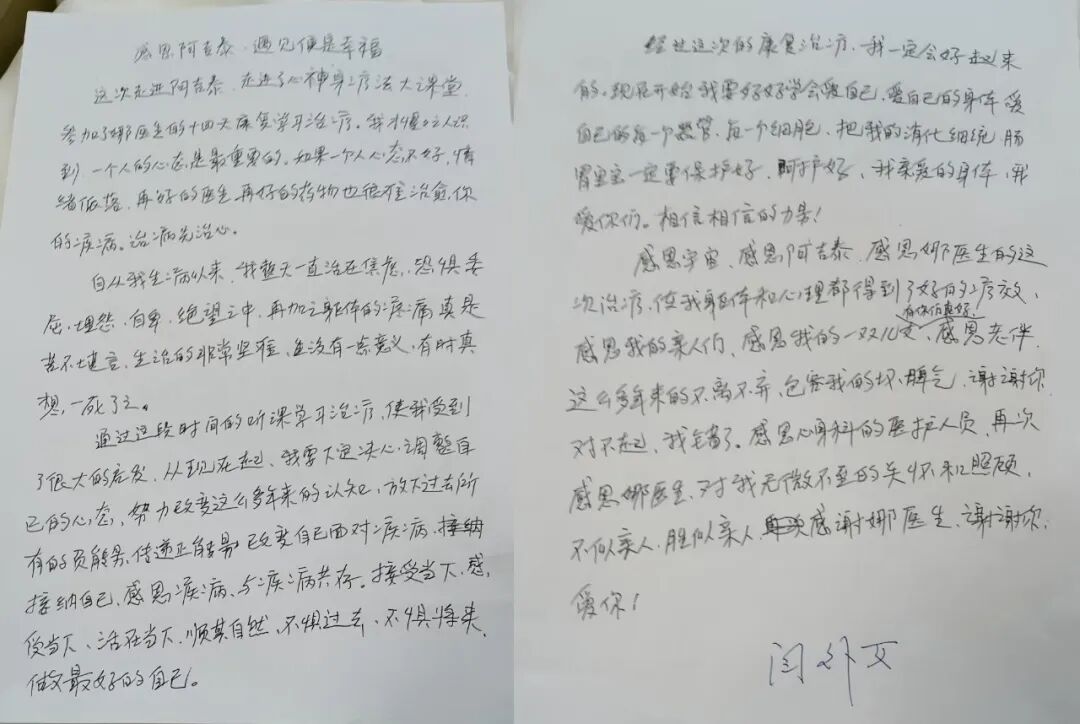 感恩阿吉泰、遇见便是幸福
这次走进阿吉泰、走进了心神身疗法大课堂,
参加了娜医生的十四天康复学习治疗。我才懂得认识
到,一个人的心态是最重要的。如果一个人心态不好,情
绪低落,再好的医生再好的药物也很难治愈,你
的疾病。治病先治心。
自从我生病以来,我整天一直活在焦虑,恐惧委
屈、埋怨、自卑、绝望之中,再加之躯体的疼痛真是
苦不堪言,生活的非常坚难,并没有一点意义,有时真
想,一死了之。
通过这段时间的听课学习治疗,使我受到
了很大的启发,从现在起,我要下定决心,调整自
己的心态,努力改变这么多年来的认知,放下过去所
有的负能量,传递正能量,改变自己面对疾病,接纳
接纳自己,感恩疾病,与疾病共存。接受当下、感
受当下、活在当下,顺其自然,不惧过去、不惧将来,
做最好的自己。
经过这次的康复治疗,我一定会好起来
的。现在开始我要好好学会爱自己,爱自己的身体,爱
自己的每一个器官,每一个细胞,把我的消化细统肠
胃宝宝一定要保护好,呵护好,我亲爱的身体,我
爱你们。相信相信的力量!
感恩宇宙、感恩阿吉泰、感恩娜医生的这
次治疗,使我躯体和心理都得到了好的疗效,
有你们真好!
感恩我的亲人们、感恩我的一双儿女、感恩老伴
这么多年来的不离不弃,包容我的坏脾气,谢谢你
对不起,我错了。感恩心身科的医护人员,再次
感恩娜医生,对我无微不至的关怀和照顾,
不似亲人,胜似亲人感谢娜医生,谢谢你,
爱你!
闫外女